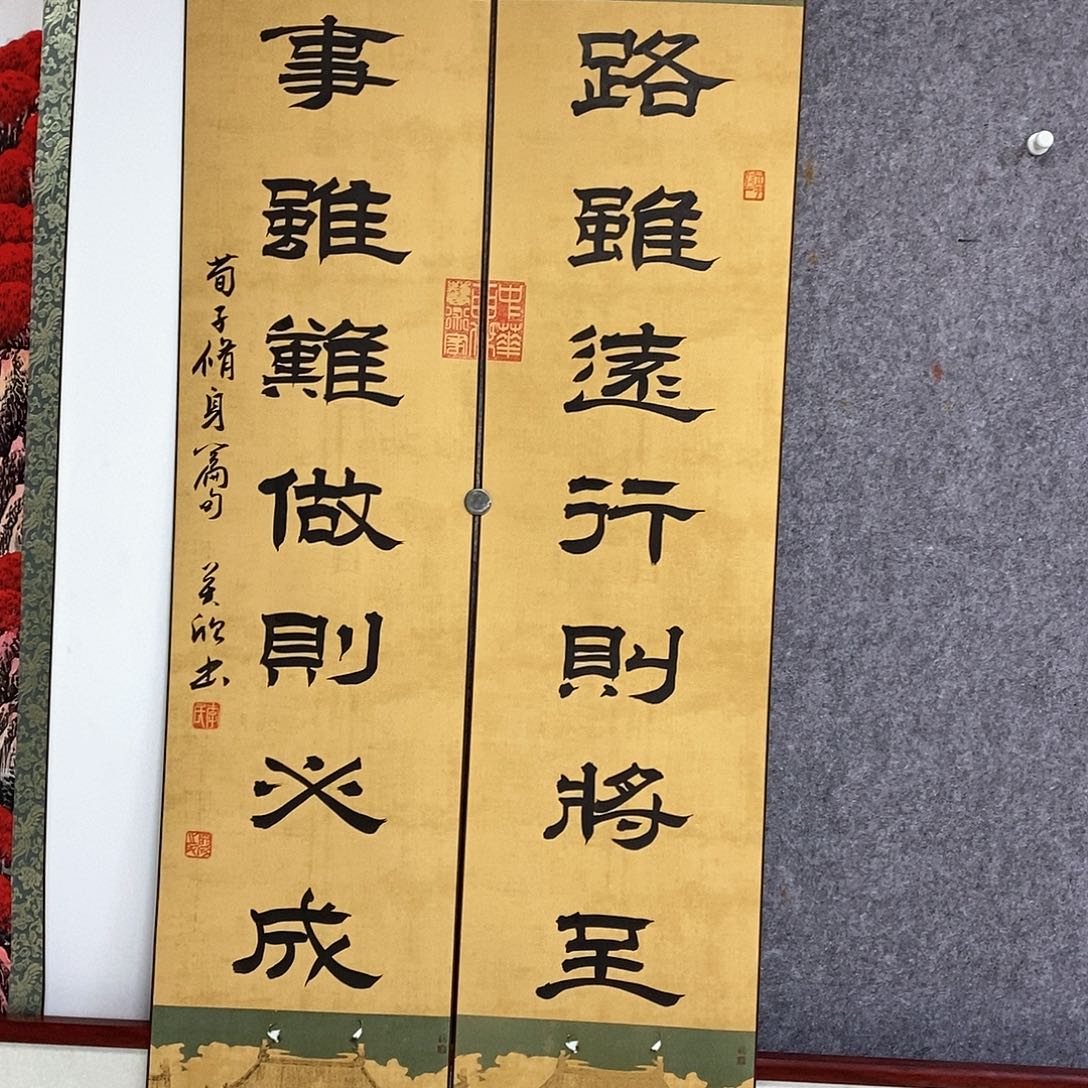 路雖遠行則將至
事雖難做則必成
荀子脩身篇句 英欣书